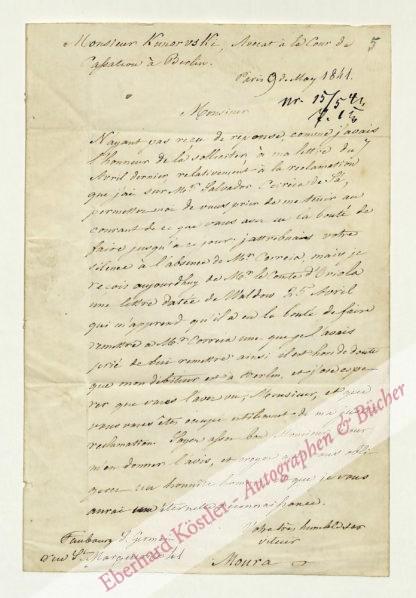 Monsieur Kunowski, Avocat à la Cour de 5
Cassation à Berlin.
Paris 9 de May 1841.
Monsieur
nr. 15/5 41
N'ayant pas reçu de réponse, comme j'avais
l'honneur de la solliciter, à ma lettre du 7
Avril dernier relativement à la réclamation
que j'ai sur Mr. Salvador Correa de Sá,
permettez moi de vous prier de me tenir au
courant de ce que vous avez eu la bonté de
faire jusqu'à ce jour. J'attribuais votre
silence à l'absence de Mr Correia, mais je
reçois aujourdhuy de Mr. le Comte d'Oriola
une lettre datée de Avril
qui m'apprend qu'il a eu la bonté de faire
remettre à Mr Correia une que je l'avais
prié de lui remettre ainsi il est hors de doute
que mon débiteur est à Berlin, et j'ose espe-
rer que vous l'avez vu, Monsieur, et que
vous vous êtes occupé de ma
reclamation. Soyez assez bon Monsieur pour
m'en donner l'avis, et croyez que vous obli-
gerez un honnête que je vous
aurai une éternelle reconnaissance.
Faubourg St Germain
rue St Marguerite 41
Votre très humble ser-
viteur
Moura
Eberhard Köstler - Autographen & Bücher